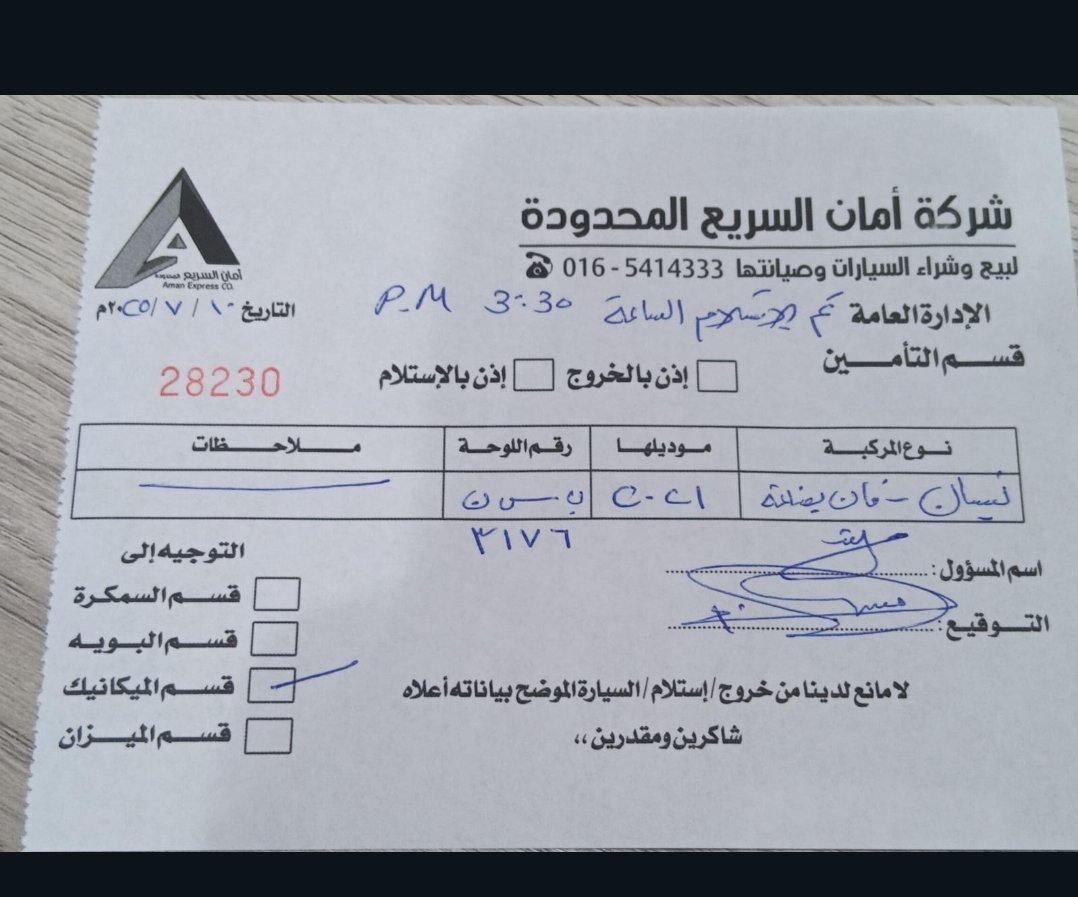 شركة أمان السريع المحدودة
لبيع وشراء السيارات وصيانتها ☎ 016 - 5414333
أمان السريع المحدودة
Aman Express CO.
الإدارة العامة تم الاستلام الساعة 3:30 P.M
التاريخ ١٠ / ٧ / ٢٠٢٥م
قسم التأمين
إذن بالخروج إذن بالإستلام
28230
نوع المركبة موديلها رقم اللوحة ملاحظات
نيسان - فان بضاعة ٢٠٢١ ب س ن
٣١٧٦
اسم المسؤول:
التوقيع:
التوجيه إلى
قسم السمكرة
قسم البويه
قسم الميكانيك
قسم الميزان
لا مانع لدينا من خروج/إستلام/السيارة الموضح بياناته أعلاه
شاكرين ومقدرين،،